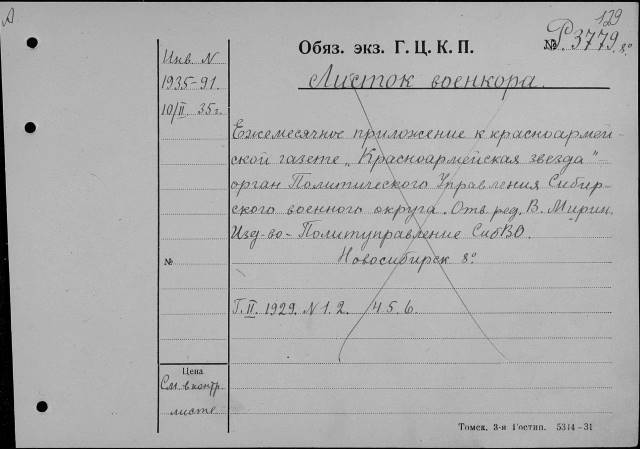 А
129
Обяз. экз. Г. Ц. К. П.
№ Р. 3779. 8°
Листок военкора.
Инв. N
1935-91.
10/II 35г.
Ежемесячное приложение к красноармей-
ской газете „Красноармейская звезда"
орган Политического Управления Сибир-
ского военного округа. Отв. ред. В. Мирин.
Изд-во - Политуправление СибВО.
№
Новосибирск 8°
Г. II. 1929. N 1. 2. 4 5. 6.
Цена
См. в контр.
листе
Томск. 3-я Гостип. 5314-31